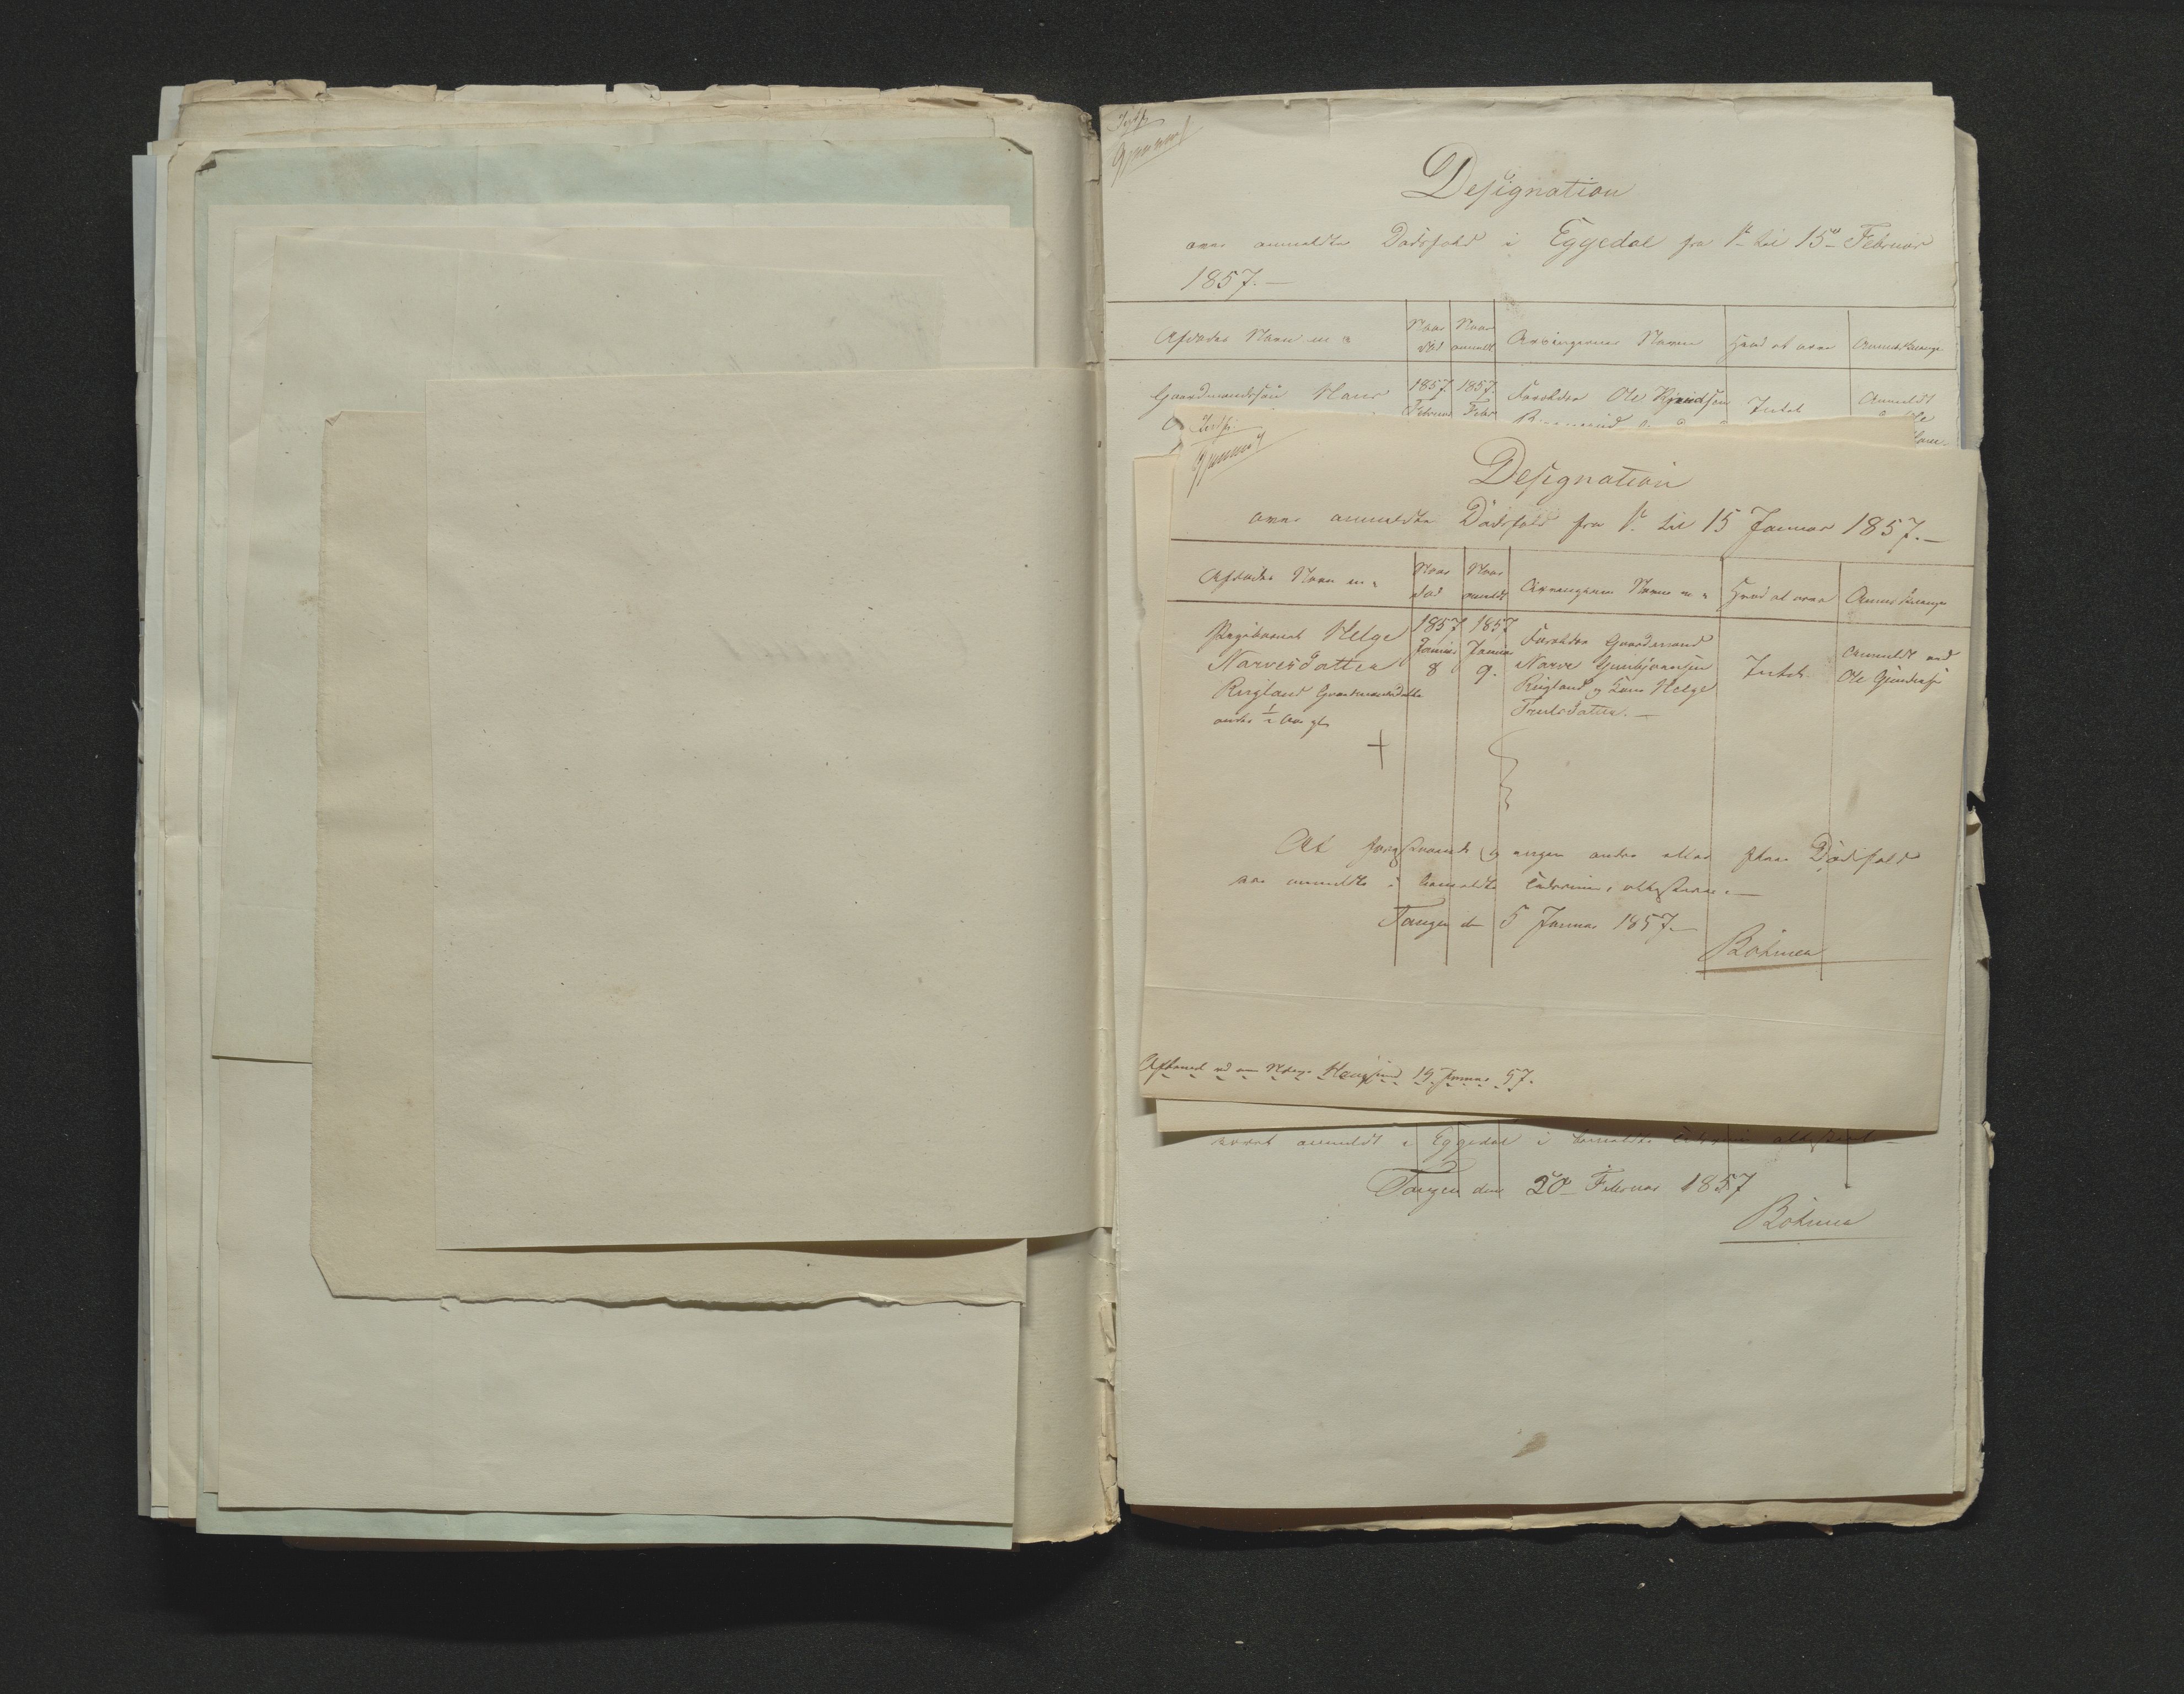 Designation
over anmeldte Dødsfald i Eggedal fra 1ste til 15de Februar
1857.—
Afdødes Navn m. v.
Naar død
Naar anmeldt
Arvingernes Navne
Hvad at arve
Gaardmandssøn Hans
1857 Februar
1857 Febr
Forældre Ole
Intet
Anmeldt
Designation
over anmeldte Dødsfald fra 1ste til 15 Januar 1857.—
Afdødes Navn m. v.
Naar død
Naar anmeldt
Arvingernes Navne m. v.
Hvad at arve
Pigebarnet Helge
Narvesdatter
Ringland Gaardmandsdatter
under ½ Aar gl.
1857 Januar 8
1857 Januar 9.
Forældre Gaardmand
Narve
Ringland og Kone Helge
Truls Datter.—
Intet.
Anmeldt ved
Ole
At foranstaaende og ingen andre eller flere Dødsfald
ere anmeldte i bemeldte Tidsrum, attesteres.—
Tangen den 5 Januar 1857.—
Böhmer
19 Januar 57.
været anmeldt i Eggedal i bemeldte Tidsrum
Tangen den 20de Februar 1857
Böhmer